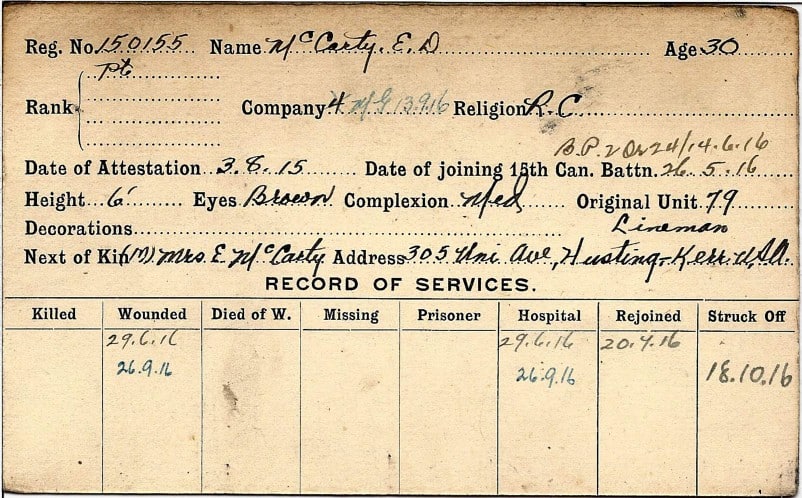 Reg. No. 150155 Name McCarty. E. D Age 30
Pte
Rank Company 4 MG 13.9.16 Religion R.C.
B.P. 2 Or 24/14.6.16
Date of Attestation 3.8.15 Date of joining 15th Can. Battn. 26.5.16
Height 6' Eyes Brown Complexion Med Original Unit 79
Decorations Lineman
Next of Kin (M) Mrs. E. McCarty Address 305 Uni Ave,
RECORD OF SERVICES.
Killed Wounded Died of W. Missing Prisoner Hospital Rejoined Struck Off
29.6.16 29.6.16 20.7.16
26.9.16 26.9.16 18.10.16